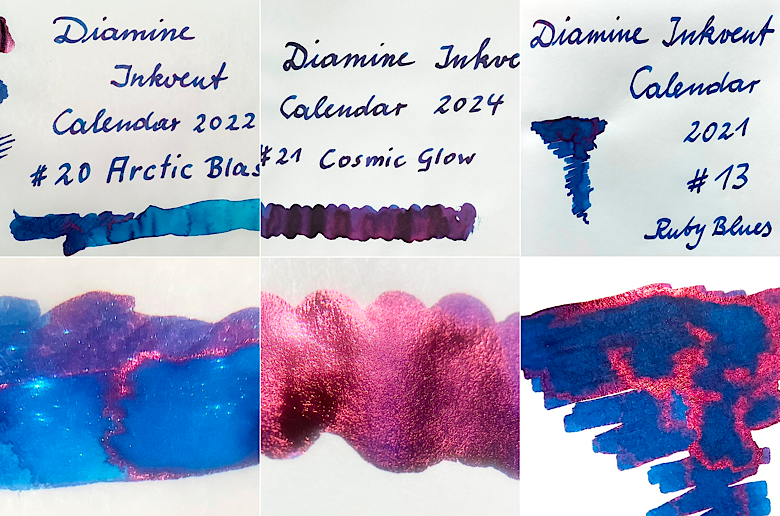 Diamine
Inkvent
Calendar 2022
#20 Arctic Blas
Diamine Inkve
Calendar 2024
#21 Cosmic Glow
Diamine Inkvent
Calendar
2021
#13
Ruby Blues